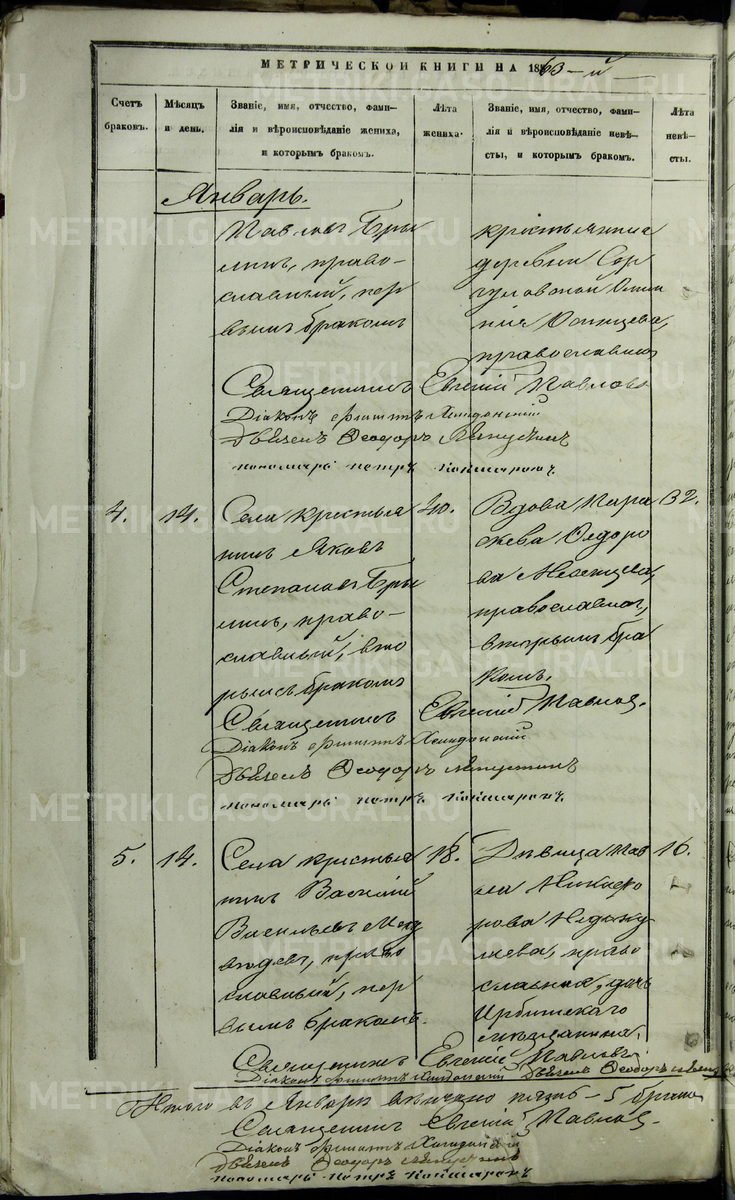 МЕТРИЧЕСКОЙ КНИГИ НА 1863-й
Счетъ браковъ.
Мѣсяцъ и день.
Званіе, имя, отчество, фами-
лія и вѣроисповѣданіе жениха,
и которымъ бракомъ.
Лѣта жениха.
Званіе, имя, отчество, фами-
лія и вѣроисповѣданіе невѣ-
сты, и которымъ бракомъ.
Лѣта невѣ-
сты.
Январь.
Павловъ Бры
линъ, право-
славный, пер
вымъ бракомъ
крестьянина
деревни
православная
Священникъ Евгеній Павловъ
Діаконъ
Дьячекъ Ѳеодоръ Ляпустинъ
Пономарь Петръ
4.
14.
Села крестья
нинъ Яковъ
Степановъ Бры
линъ, право-
славный, вто
рымъ бракомъ
40.
Вдова Пара
скева Ѳедоро
ва
православная,
вторымъ бра
комъ.
32.
Священникъ Евгеній Павловъ.
Діаконъ
Дьячекъ Ѳеодоръ Ляпустинъ
Пономарь Петръ
5.
14.
Села крестья
нинъ Василій
Васильевъ Мед
вѣдевъ, право
славный, пер
вымъ бракомъ.
18.
Дѣвица Пав
ла Никифо
рова
право
славная, дочь
Ирбитскаго
мѣщанина.
16.
Священникъ Евгеній Павловъ
Діаконъ Дьячекъ Ѳеодоръ
Итого въ Январѣ вѣнчано пять - 5 брако
Священникъ Евгеній Павловъ.
Діаконъ
Дьячекъ Ѳеодоръ Ляпустинъ
Пономарь Петръ
METRIKI.GASO-URAL.RU